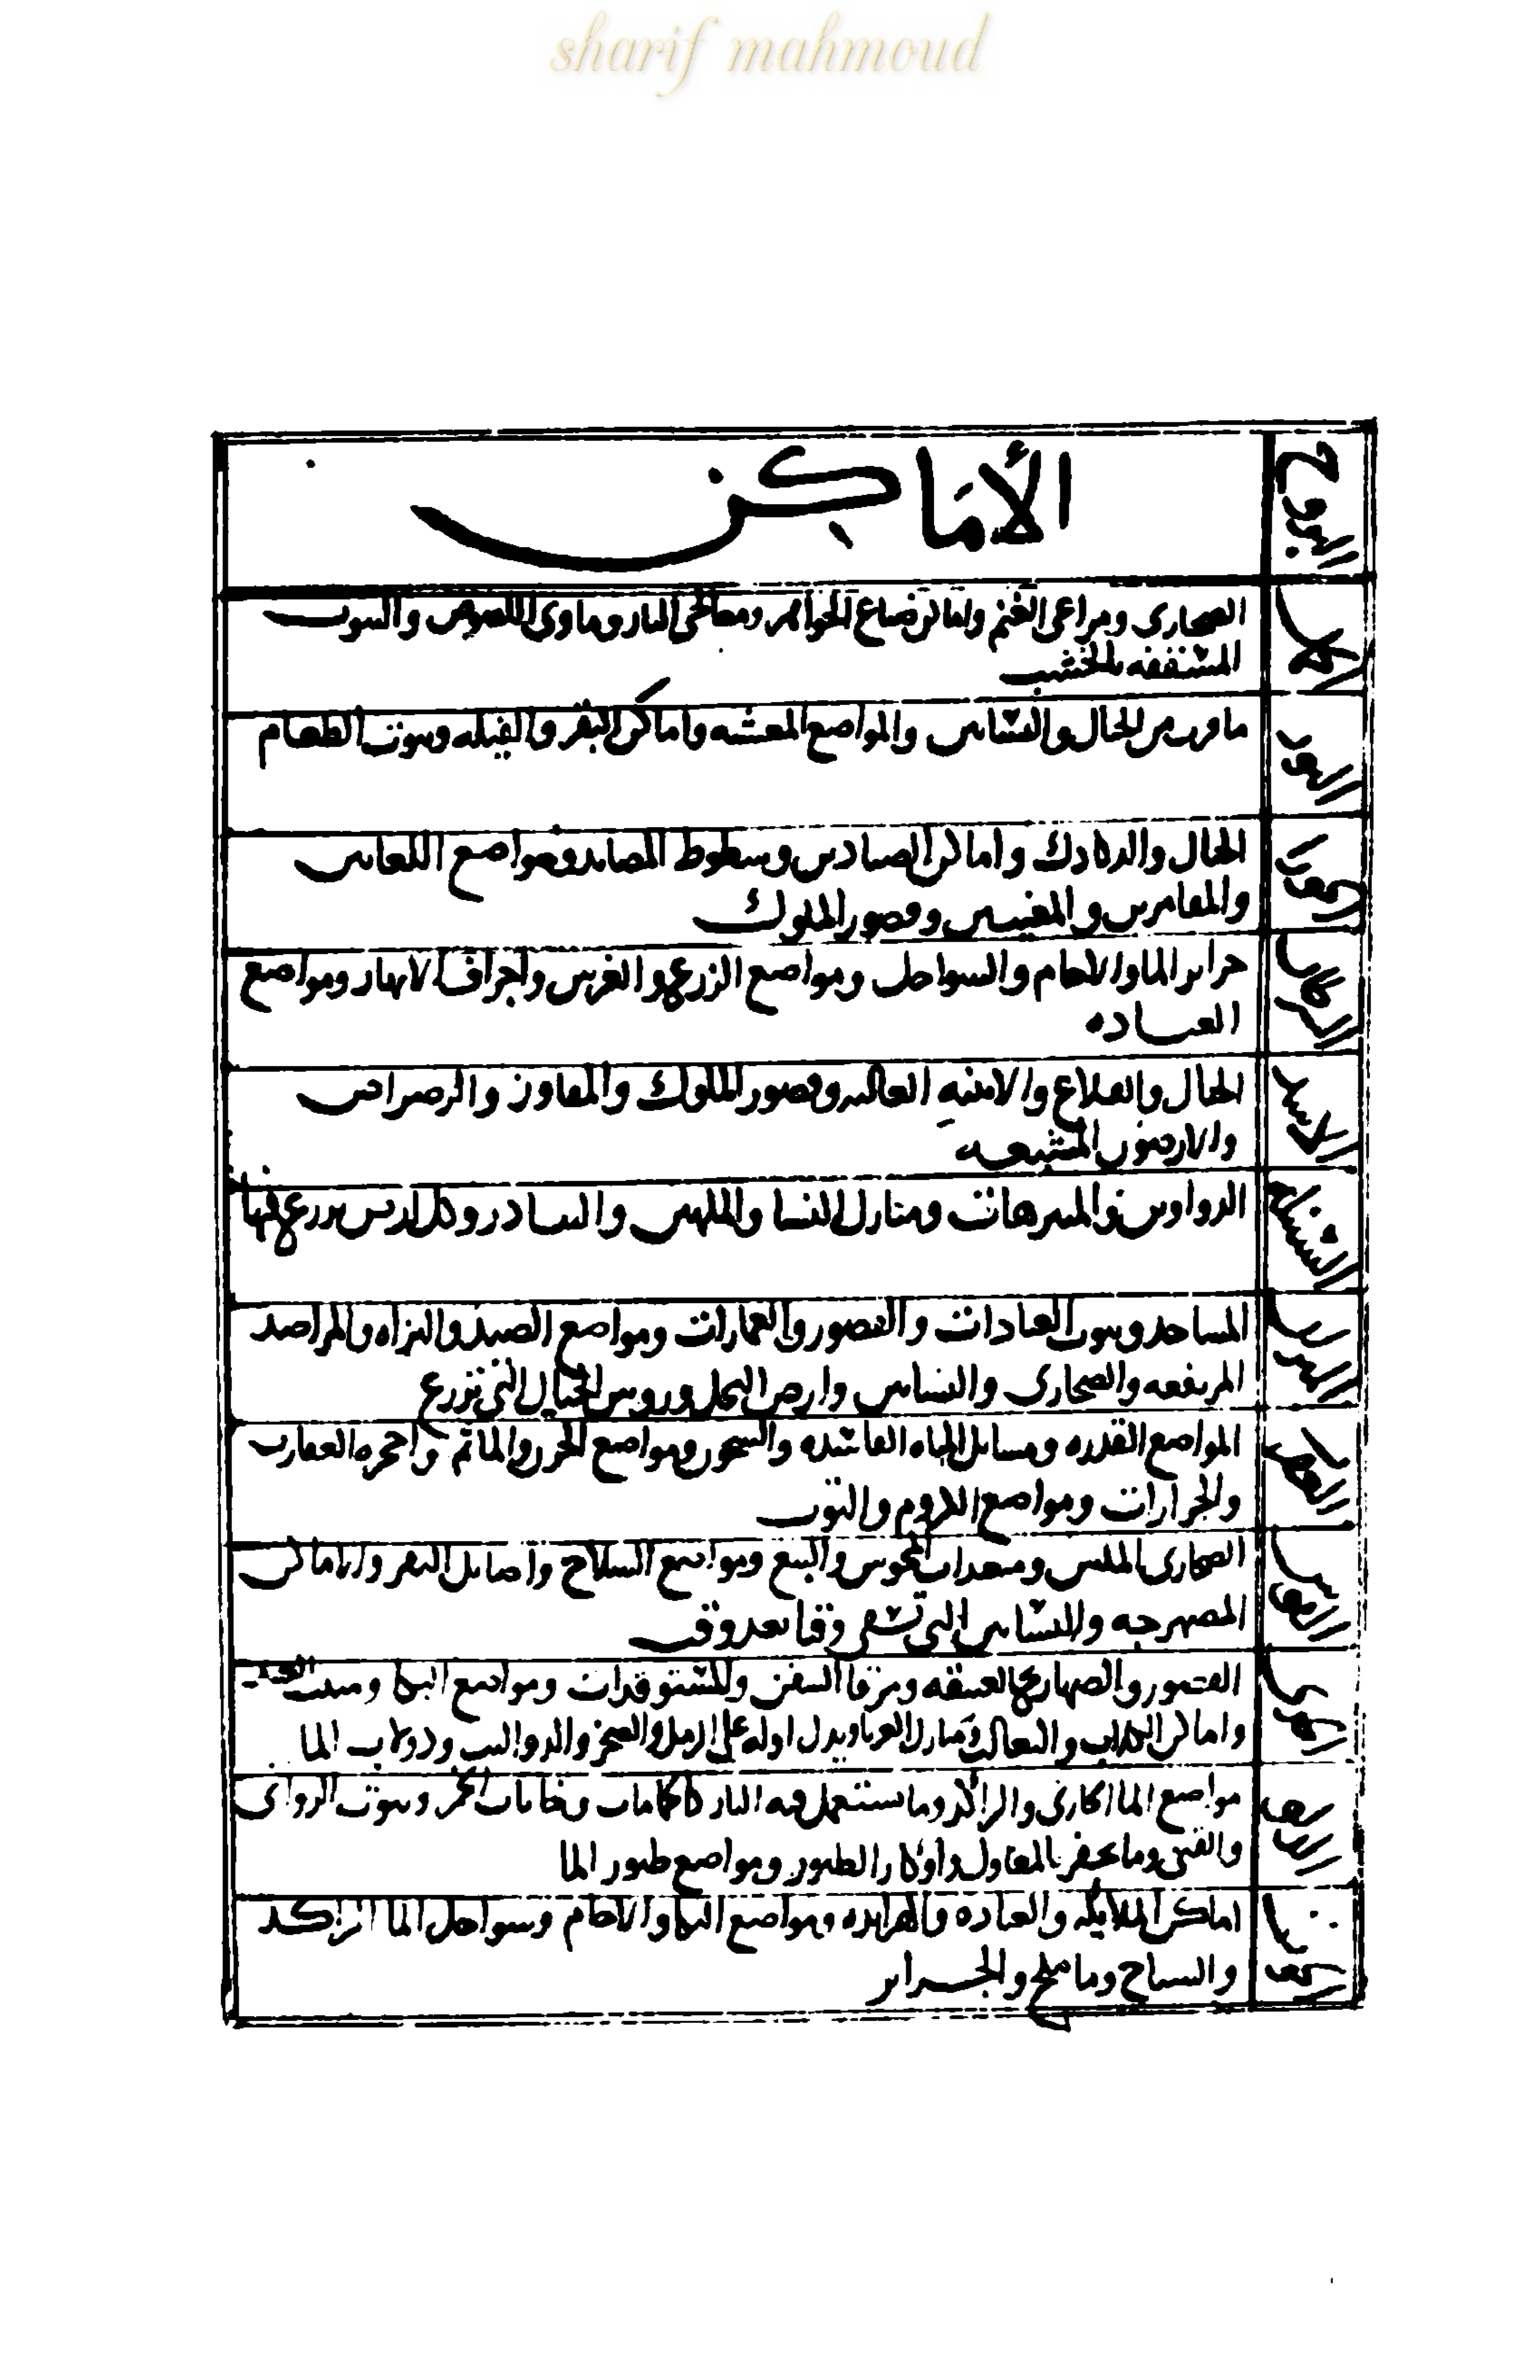 sharif mahmoud
البروج
الأماكن
الحمل
الصحارى ومراعى الغنم واماكن صناع الجواهر ومصالى النار وماوى اللصوص والبيوت
المسقفه بالخشب
الثور
ما قرب من الجبال والبساتين والمواضع المعشبه واماكن البقر والفيله وبيوت الطعام
الجوزا
الجبال والدكادك واماكن الصيادين وسطوط المصايد ومواضع اللعابين
والمقامرين والمغنيين وقصور الملوك
السرطان
جزاير الما والاجام والسواحل ومواضع الزرع والغرس واجراف الانهار ومواضع
العباده
الاسد
الجبال والقلاع والابنيه العاليه وقصور الملوك والمفاوز والرضراض
والارضون
السنبله
الدواوين والمنزهات ومنازل النسا والملهين والبيادر وكل ارض يزرع فيها
الميزان
المساجد وبيوت العبادات والقصور والعمارات ومواضع الصيد والبزاه والمراصد
المرتفعه والصحارى والبساتين وارض النخل وروس الجبال التى تزرع
العقرب
المواضع القذره ومسايل المياه الفاسده والسجون ومواضع الحزن والماتم واجحره العقارب
والجرارات ومواضع الكروم والتوت
القوس
الصحارى الملس ومتعبدات المجوس والبيع ومواضع السلاح واصابل البقر والاماكن
المصهرجه والبساتين التى تسقى وقتا بعد وقت
الجدى
القصور والصهاريج العتيقه ومرفا السفن والمستوقدات ومواضع البكا ومبيت
واماكن الكلاب والثعالب ومنازل الغربا ويدل اوله على الرمل والصخر والدواليب ودولاب الما
الدلو
مواضع الما الجارى والراكد وما يستعمل فيه النار كالحمامات وخانات الخمر وبيوت الزوانى
والقنى وما يحفر بالمعاول واوكار الطيور ومواضع طيور الما
الحوت
اماكن الملايكه والعباده والهرابده ومواضع البكا والاجام وسواحل الما الراكد
والسباخ وما ملح والجزاير